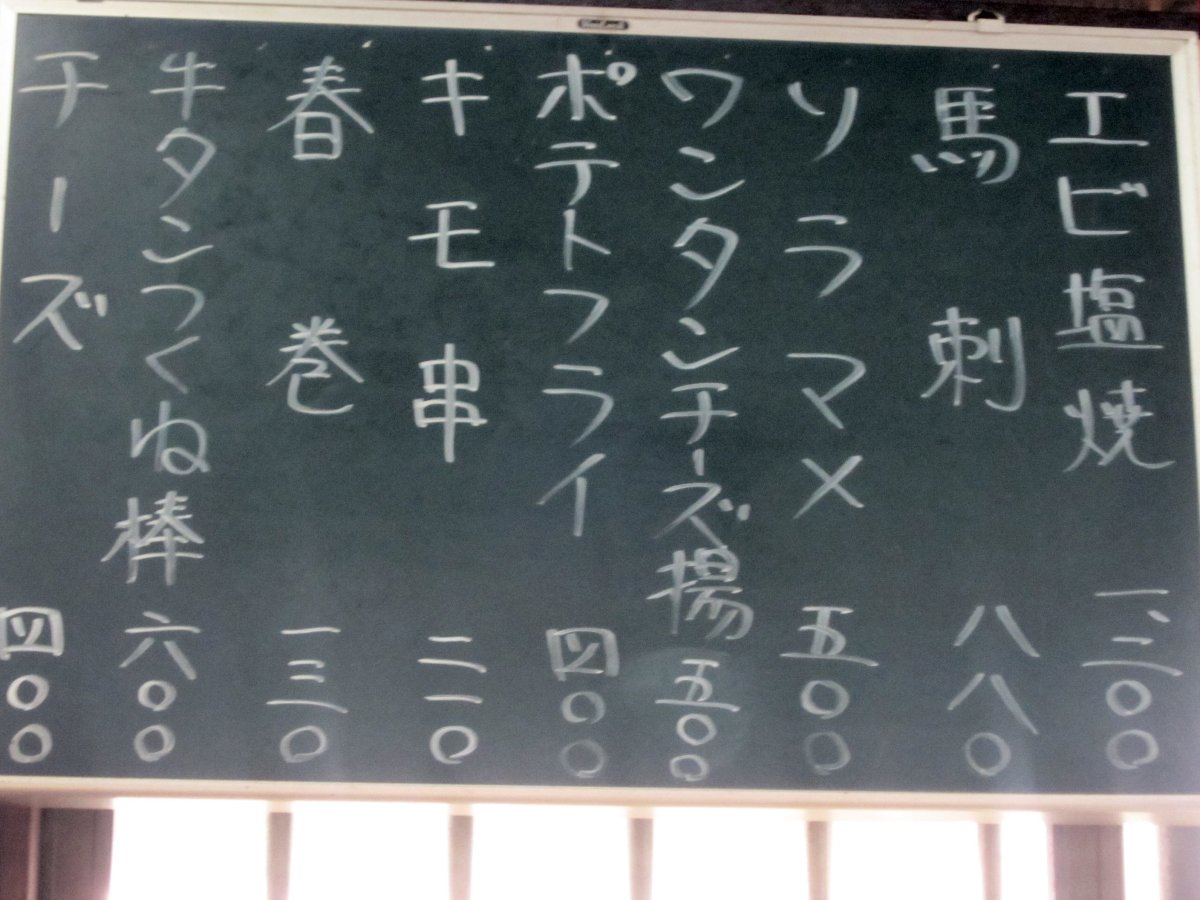 エビ塩焼 一、二〇〇
馬刺 八八〇
ソラマメ 五〇〇
ワンタンチーズ揚 五〇〇
ポテトフライ 四〇〇
キモ串 二一〇
春巻 一三〇
牛タンつくね棒 六〇〇
チーズ 四〇〇